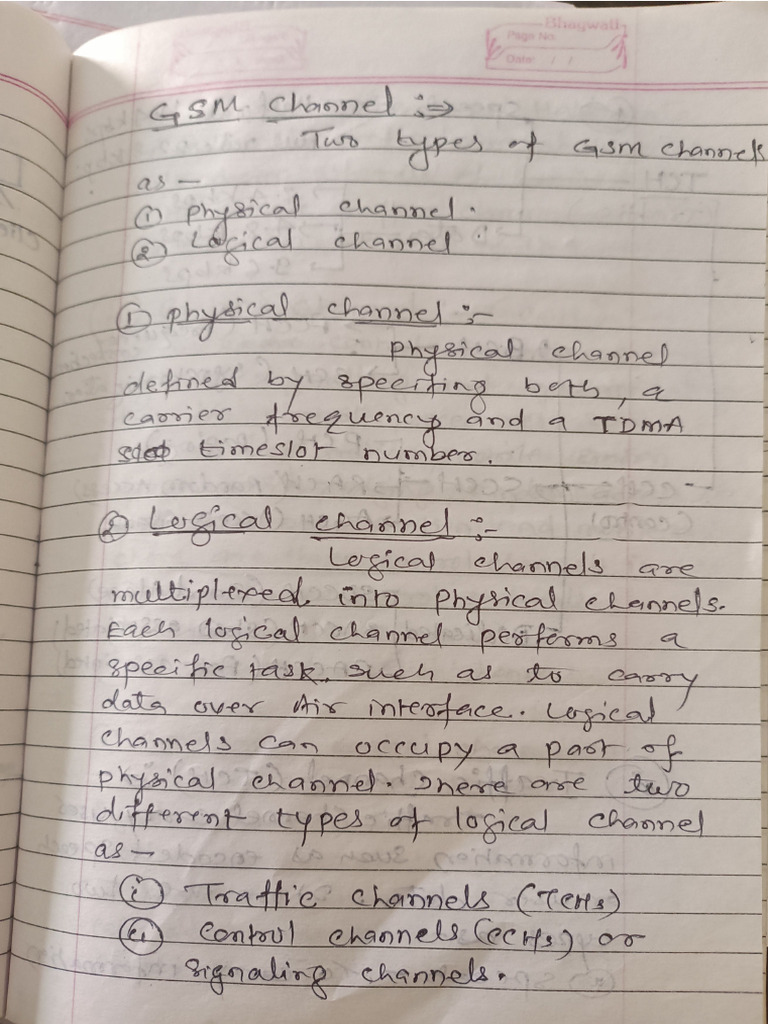 Bhagwati
Page No.
Date: / /
GSM Channel :⇒
Two types of GSM channels
as –
① physical channel.
② Logical channel
① physical channel :-
physical channel
defined by specifing both, a
carrier frequency and a TDMA
timeslot number.
② Logical channel :-
Logical channels are
multiplexed into physical channels.
Each logical channel performs a
specific task, such as to carry
data over Air interface. Logical
channels can occupy a part of
physical channel. There are two
different types of logical channel
as –
(i) Traffic channels (TCHs)
(ii) control channels (CCHs) or
signaling channels.